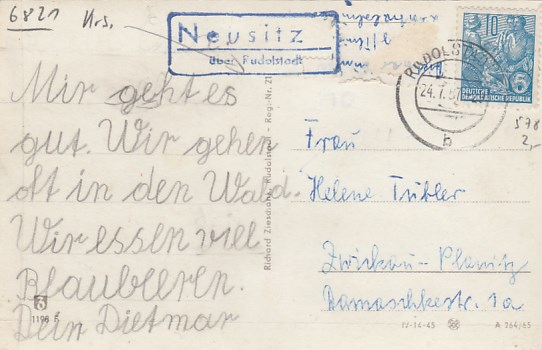 6821 Krs.
Neusitz
über Rudolstadt
10
DEUTSCHE
DEMOKRATISCHE REPUBLIK
RUDOLSTADT
24.7.57
b
578
2,-
Mir geht es
gut. Wir gehen
oft in den Wald.
Wir essen viel
Blaubeeren.
Dein Dietmar
Richard Zieschank, Rudolstadt - Reg.-Nr. 21
Frau
Helene Tribler
Zwickau-Planitz
Damaschkestr. 1a
1198 F
IV-14-45
A 264/55